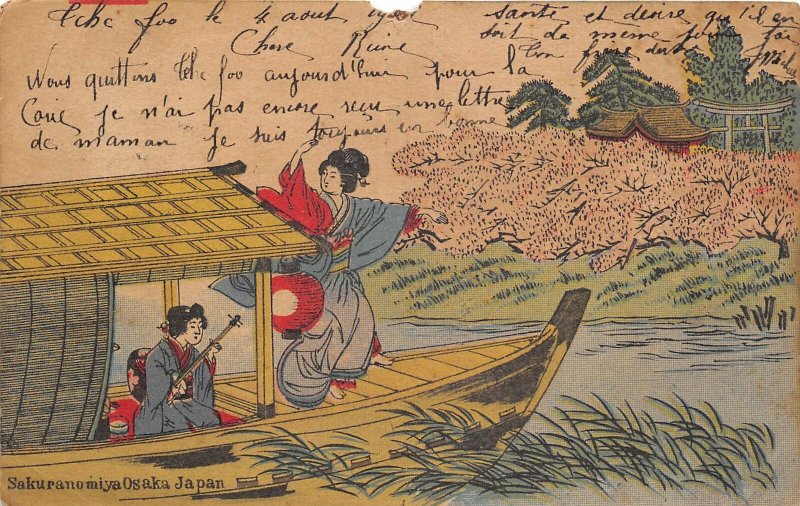 Tche foo le 4 aout
Chere Reine
Nous quittons Tche foo aujourd'hui pour la
Coree je n'ai pas encore reçu une lettre
de maman je suis toujours en bonne
santé et désire qu'il en
soit de meme pour toi
Ton frere
Sakuranomiya Osaka Japan